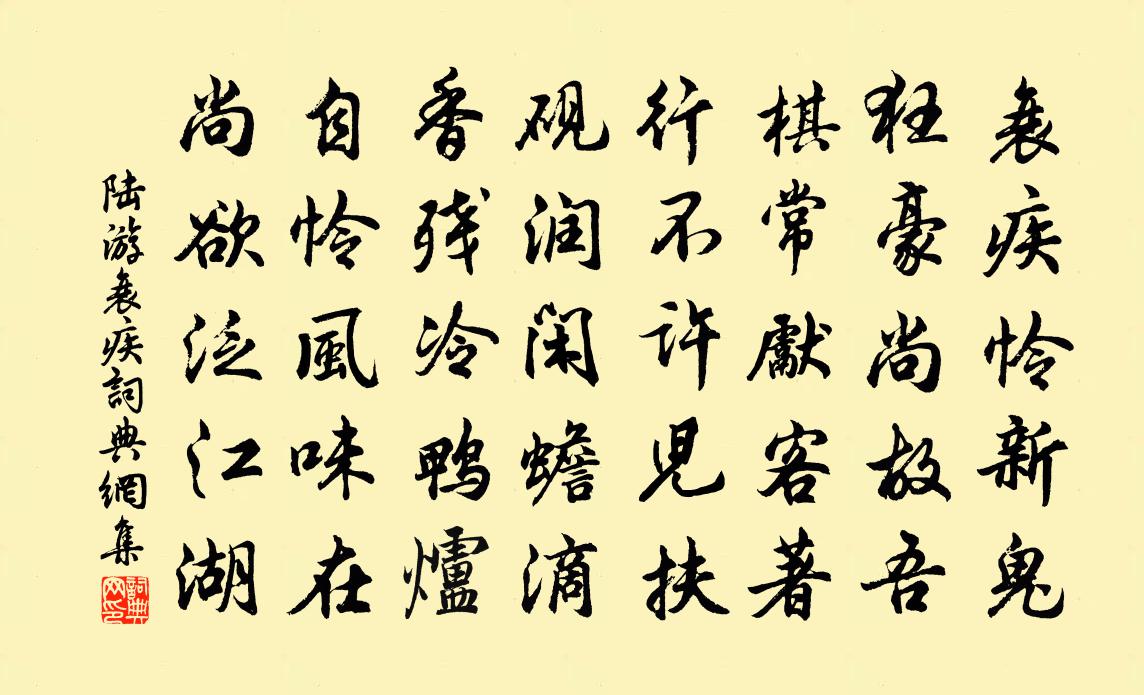 衰疾怜新鬼
狂豪尚故吾
棋常獻客著
行不许児扶
砚润闲蟾滴
香残冷鸭爐
自怜風味在
尚欲泛江湖
陆游衰疾詞典網集
詞典网印